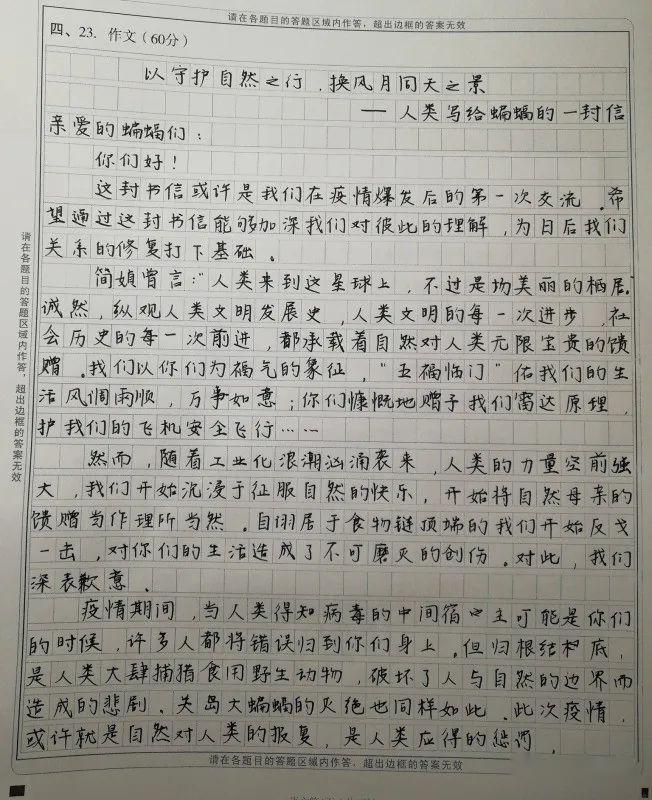 请在各题目的答题区域内作答，超出边框的答案无效
四、23. 作文(60分)
以守护自然之行，换风月同天之景
——人类写给蝙蝠的一封信
亲爱的蝙蝠们：
你们好！
这封书信或许是我们在疫情爆发后的第一次交流。希
望通过这封书信能够加深我们对彼此的理解，为日后我们
关系的修复打下基础。
简媜曾言："人类来到这星球上，不过是场美丽的栖居。
诚然，纵观人类文明发展史，人类文明的每一次进步，社
会历史的每一次前进，都承载着自然对人类无限宝贵的馈
赠。我们以你们为福气的象征，"五福临门"佑我们的生
活风调雨顺，万事如意；你们慷慨地赠予我们雷达原理，
护我们的飞机安全飞行……
然而，随着工业化浪潮汹涌袭来，人类的力量空前强
大，我们开始沉浸于征服自然的快乐，开始将自然母亲的
馈赠当作理所当然。自诩居于食物链顶端的我们开始反戈
一击，对你们的生活造成了不可磨灭的创伤。对此，我们
深表歉意。
疫情期间，当人类得知病毒的中间宿主可能是你们
的时候，许多人都将错误归到你们身上。但归根结底，
是人类大肆捕猎食用野生动物，破坏了人与自然的边界而
造成的悲剧。关岛大蝙蝠的灭绝也同样如此。此次疫情，
或许就是自然对人类的报复，是人类应得的惩罚，
请在各题目的答题区域内作答，超出边框的答案无效
请在各题目的答题区域内作答，超出边框的答案无效